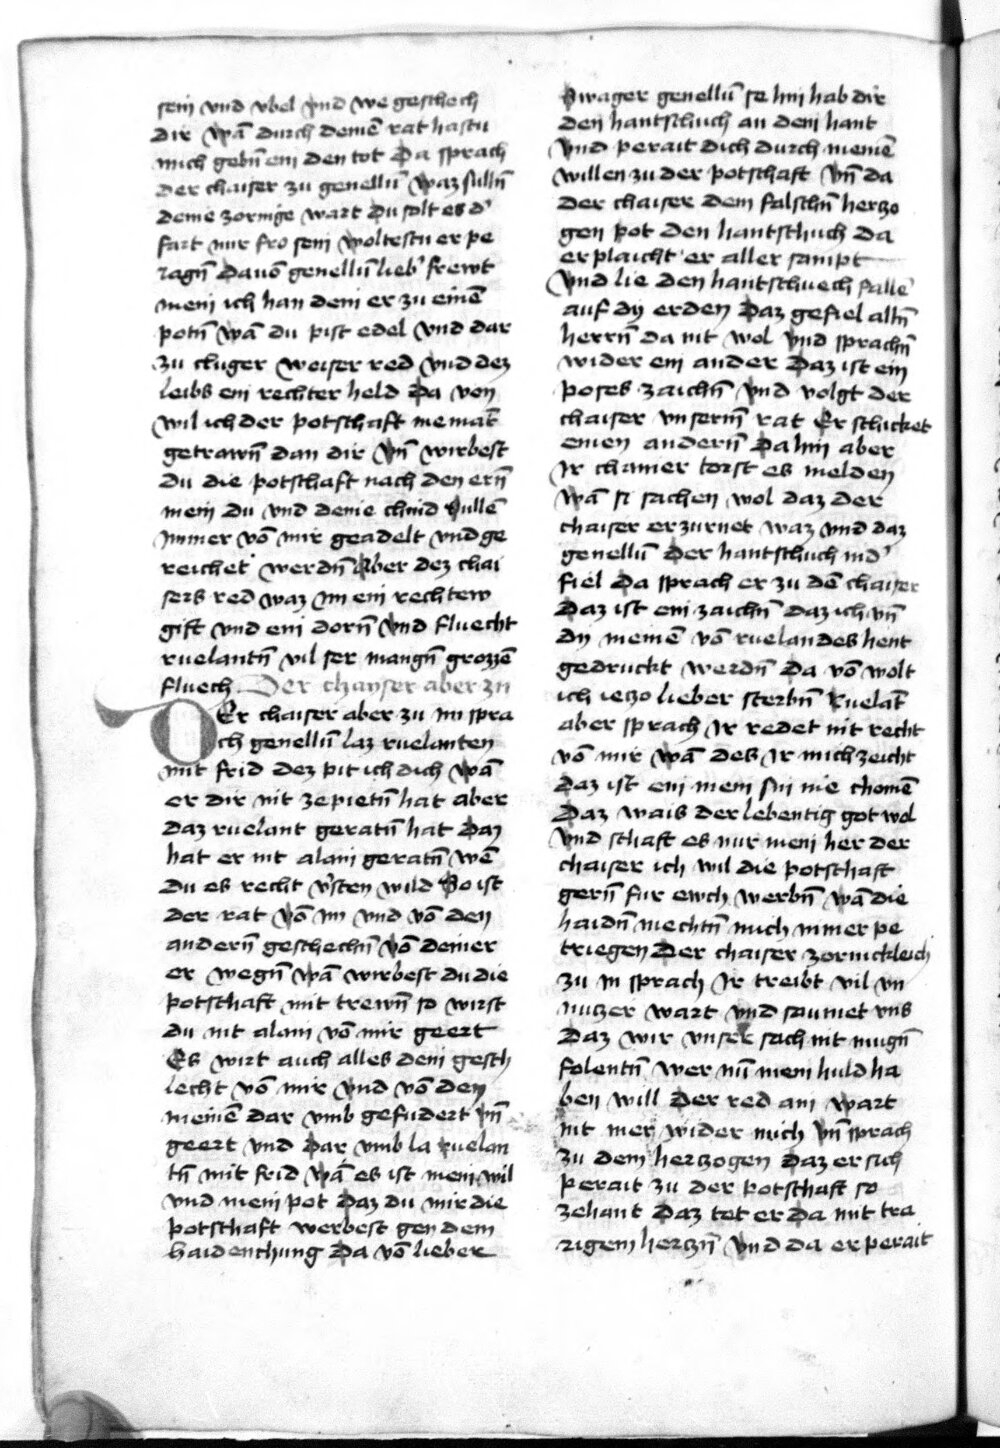 sein vnd vbel vnd we geschech
dir wā durch deinē rat hastu
mich gebn̄ ein den tot Da sprach
der chaiser zu genellū waz sulln̄
deine zornige wart du solt es d'
fart nur fro sein woltestu er pe
ragn̄ dauō genellū lieb' frewt
mein ich han dein er zu einē
potn̄ wā du pist edel vnd dar
zu chluger weiser red vnd dez
leibs ein rechter held Da von
wil ich der potschaft niemāt
getrawn̄ dan dir vn̄ wirbest
du die potschaft nach den ern̄
mein du vnd deine chind sullē
ymmer vō mir geadelt vnd ge
reichet werdn̄ Aber dez chai
sers red waz im ein rechtew
gift vnd ein dorn̄ vnd fluecht
ruelantn̄ vil ser mangn̄ grozzē
fluech Der chayser aber zu
DEr chaiser aber zu im spra
ch genellū laz ruelanten
mit frid dez pit ich dich wā
er dir nit ze pietn̄ hat aber
daz ruelant geratn̄ hat Daz
hat er nit alain geratn̄ wē
du es recht v'sten wild So ist
der rat vō im vnd vō den
andern̄ geschechn̄ vō deiner
er wegn̄ wā wirbest du die
potschaft mit trewn̄ so wirst
du nit alain vō mir geert
Es wirt auch alles dein gesch
lecht vō mir vnd vō den
meinē dar vmb gefudert vn̄
geert vnd Dar vmb la ruelan
tn̄ mit frid wā es ist mein wil
vnd mein pot Daz du mir die
potschaft werbest gen dem
haidenchunig Da vō lieber
Swager genellū se hin hab dir
den hantschuch an dein hant
vnd perait dich durch meinē
willen zu der potschaft vn̄ da
der chaiser dem falschn̄ herzo
gen pot den hantschuch da
erplaicht er aller sampt
vnd lie den hantschuech fallē
auf dy erden Daz gefiel alln̄
herrn̄ da nit wol vnd sprachn̄
wider ein ander Daz ist ein
poses zaichn̄ vnd volgt der
chaiser vnserm̄ rat Er schicket
einen andern̄ Da hin aber
Ir chainer torst es melden
wā si sachen wol daz der
chaiser erzurnet waz vnd daz
genellū Der hantschuch nid'
fiel Da sprach er zu dē chaiser
Daz ist ein zaichn̄ daz ich vn̄
dy meinē vō ruelandes hent
gedruckt werdn̄ Da vō wolt
ich iezo lieber sterbn̄ Ruelāt
aber sprach Ir redet nit recht
vō mir wā des Ir mich zeicht
daz ist ein mein sin nie chomē
Daz wais der lebentig got wol
vnd schaft es nur mein her der
chaiser ich wil die potschaft
gern̄ fur ewch werbn̄ wā die
haidn̄ mechtn̄ mich nimer pe
triegen Der chaiser zornickleich
zu in sprach Ir treibt vil vn
nutzer wart vnd saumet vns
Daz wir vnser sach nit mugn̄
folentn̄ wer nū mein huld ha
ben will Der red ain wart
nit mer wider mich vn̄ sprach
zu dem herzogen Daz er sich
perait zu der potschaft so
zehant Daz tet er Da mit tra
rigem herczn̄ vnd da er perait